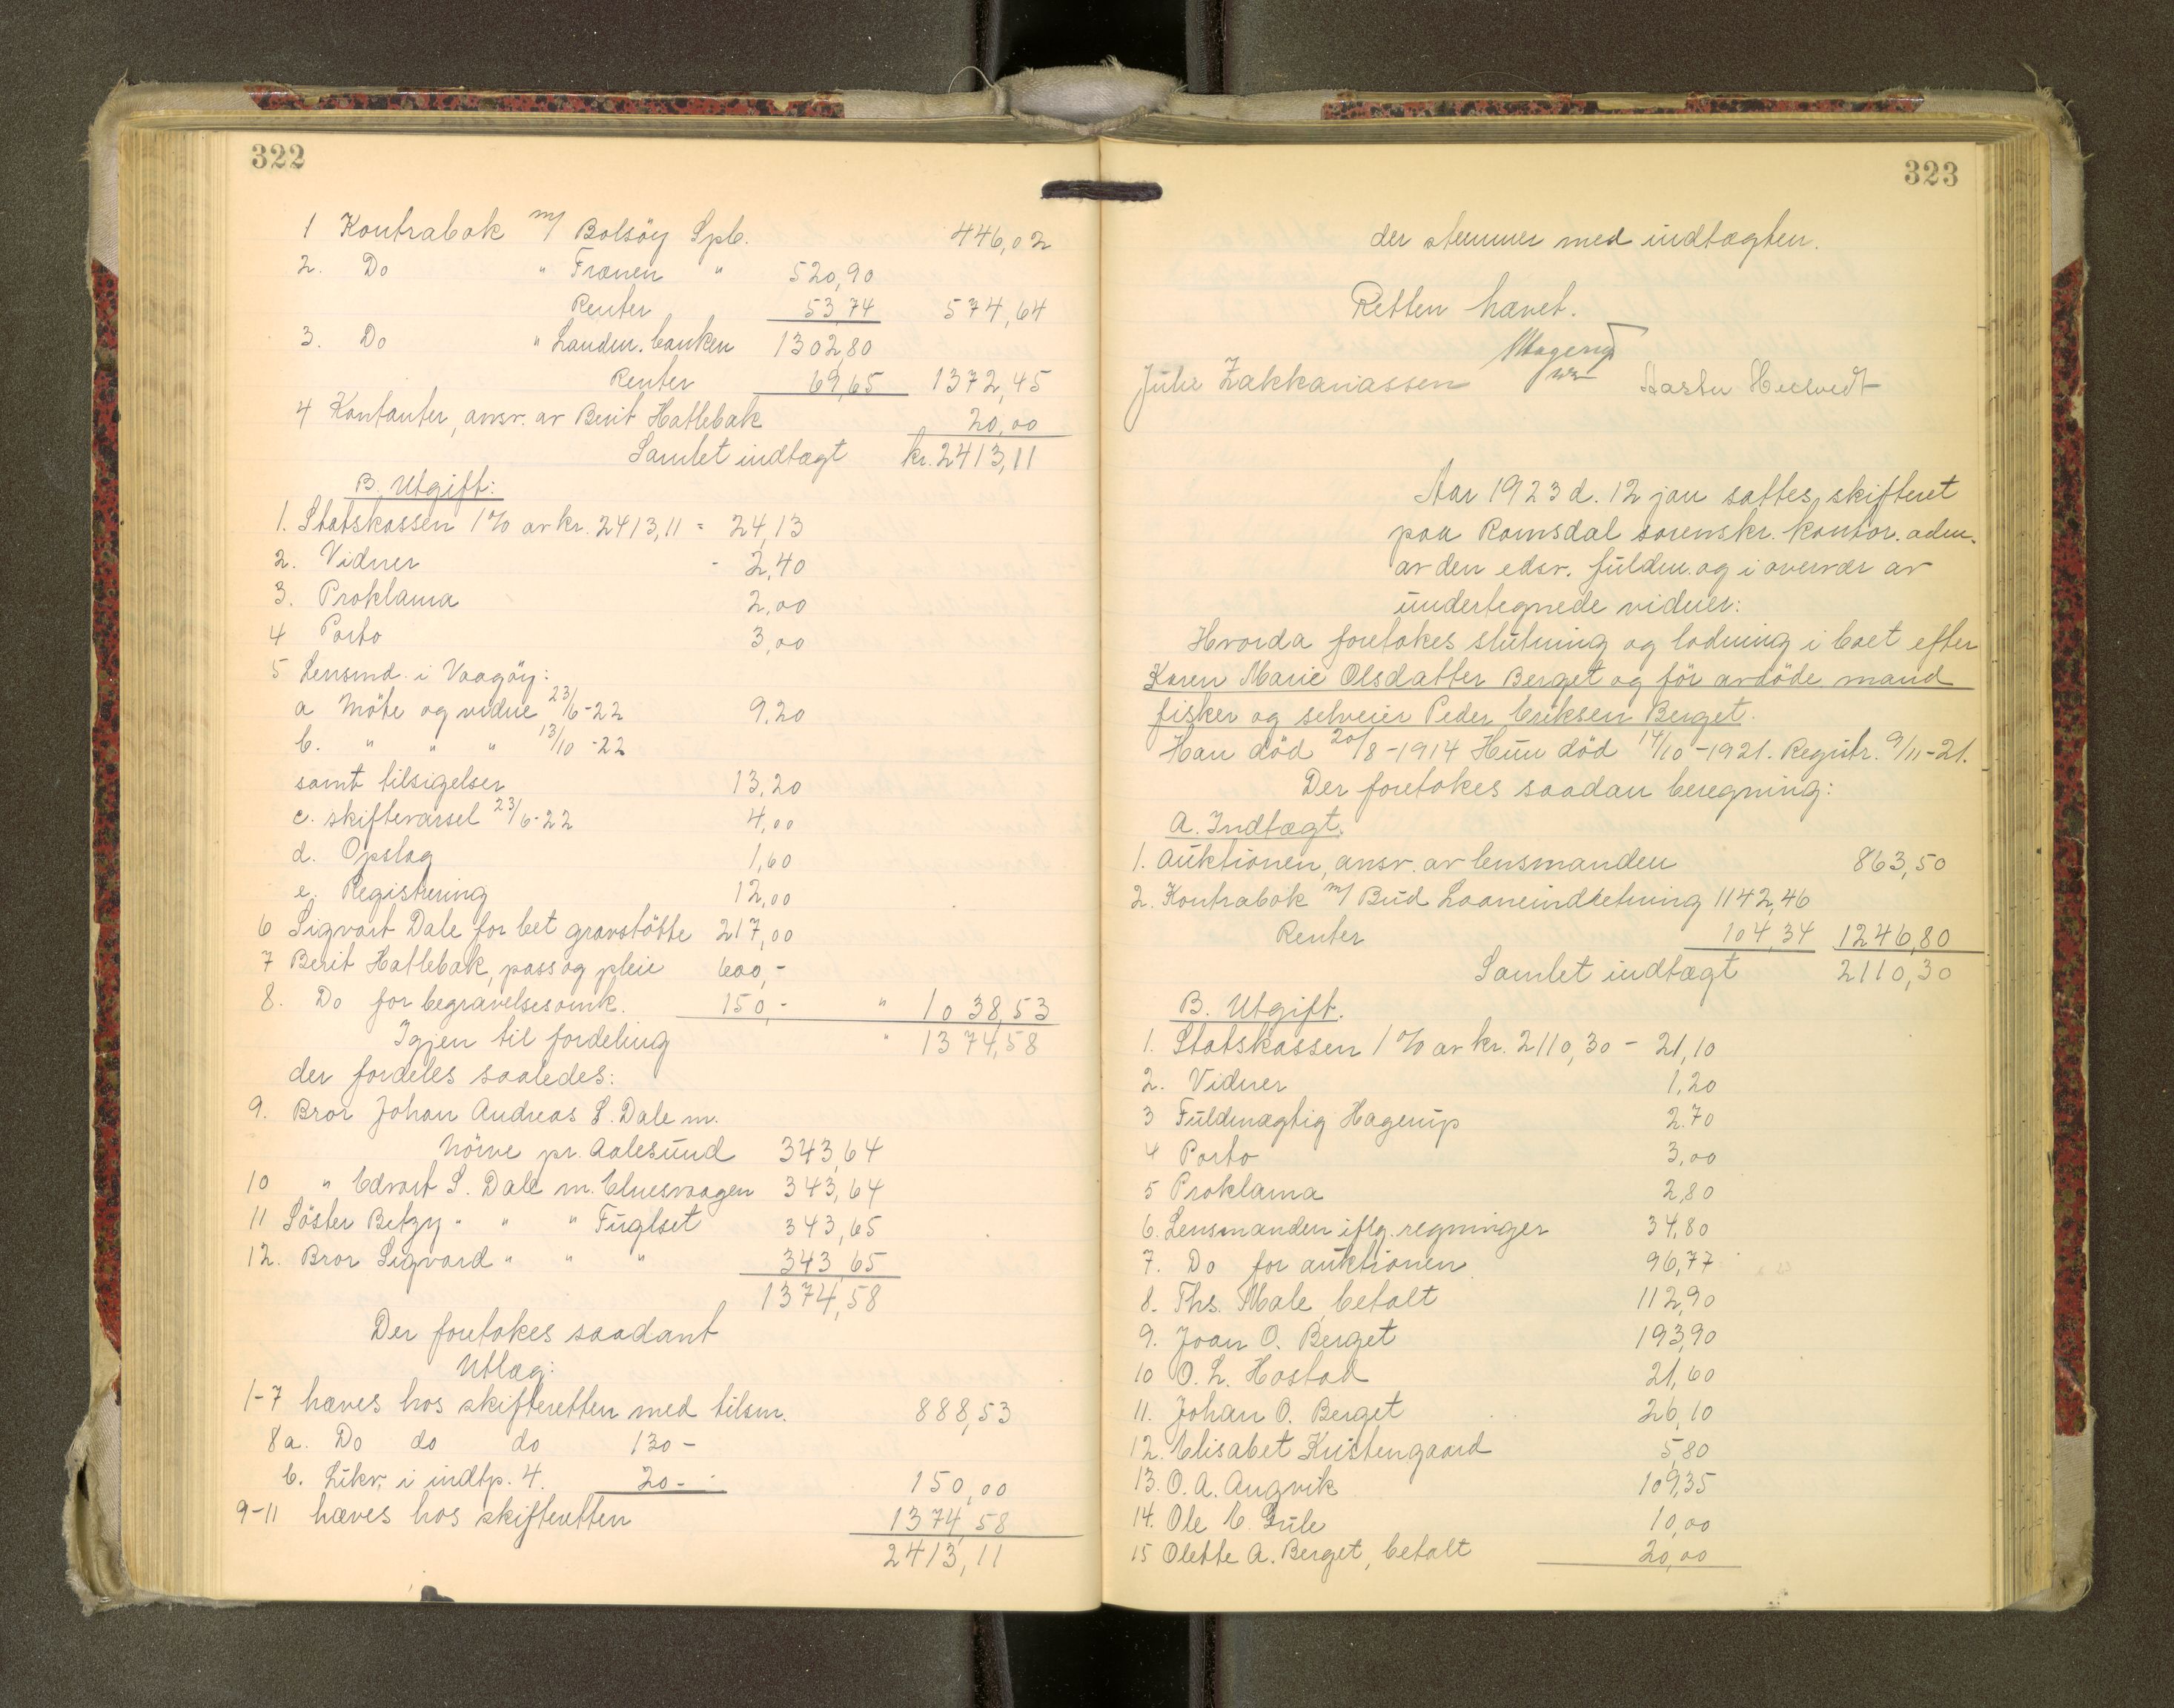 322
1 Kontrabok m/ Bolsöy Spb. 446,02
2. Do " Frænen " 520,90
Renter 53,74 574,64
3. Do " Landm. banken 1302,80
Renter 69,65 1372,45
4 Kontanter, ansv. av Berit Hatlebak 20,00
Samlet indtægt kr. 2413,11
B. Utgift:
1. Statskassen 1% av kr. 2413,11 = 24,13
2. Vidner - 2,40
3. Proklama 2,00
4 Porto 3,00
5 Lensmd. i Vaagöy:
a Möte og vidne 23/6-22 9,20
b. " " " 13/10-22
samt tilsigelser 13,20
c. skiftevarsel 23/6-22 4,00
d. Opslag 1,60
e. Registrering 12,00
6 Sigvart Dale for bet gravstötte 217,00
7 Berit Hatlebak, pass og pleie 600,-
8. Do for begravelsesomk. 150,- " 1038,53
Igjen til fordeling " 1374,58
der fordeles saaledes:
9. Bror Johan Andreas S. Dale m.
Nörve pr. Aalesund 343,64
10 " Edvart S. Dale m. Elnesvaagen 343,64
11 Söster Betzy " " " Fuglset 343,65
12. Bror Sigvard " " " 343,65
1374,58
Der foretokes saadant
Utlæg:
1-7 hæves hos skifteretten med tilsm. 888,53
8a. Do do do 130-
b. Likv. i indtp. 4. 20- 150,00
9-11 hæves hos skifteretten 1374,58
2413,11
323
der stemmer med indtægten.
Retten hævet.
Hagerup
Julie Zakkariassen
Aar 1923 d. 12 jan sattes skifteret
paa Romsdal sorenskr. kontor. adm.
av den edsv. fuldm. og i overvær av
undertegnede vidner:
Hvorda foretokes slutning og lodning i boet efter
Karen Marie Olsdatter Berget og för avdöde mand
fisker og selveier Peder Eriksen Berget.
Han död 20/8-1914 Hun död 14/10-1921. Registr. 9/11-21.
Der foretokes saadan beregning:
A. Indtægt.
1. Auktionen, ansv. av lensmanden 863,50
2. Kontrabok m/ Bud Laaneindretning 1142,46
Renter 104,34 1246,80
Samlet indtægt 2110,30
B. Utgift.
1. Statskassen 1% av kr. 2110,30 - 21,10
2. Vidner 1,20
3 Fuldmægtig Hagerup 2.70
4 Porto 3,00
5 Proklama 2,80
6. Lensmanden iflg. regninger 34,80
7. Do for auktionen 96,77
8. Ths. Male, betalt 112,90
9. Joan O. Berget 193,90
10 O. L. Hostad 21,60
11. Johan O. Berget 26,10
12. Elisabet Kristengaard 5,80
13. O. A. Angvik 109,35
14. Ole E. Gule 10,00
15 Olette A. Berget, betalt 20,00